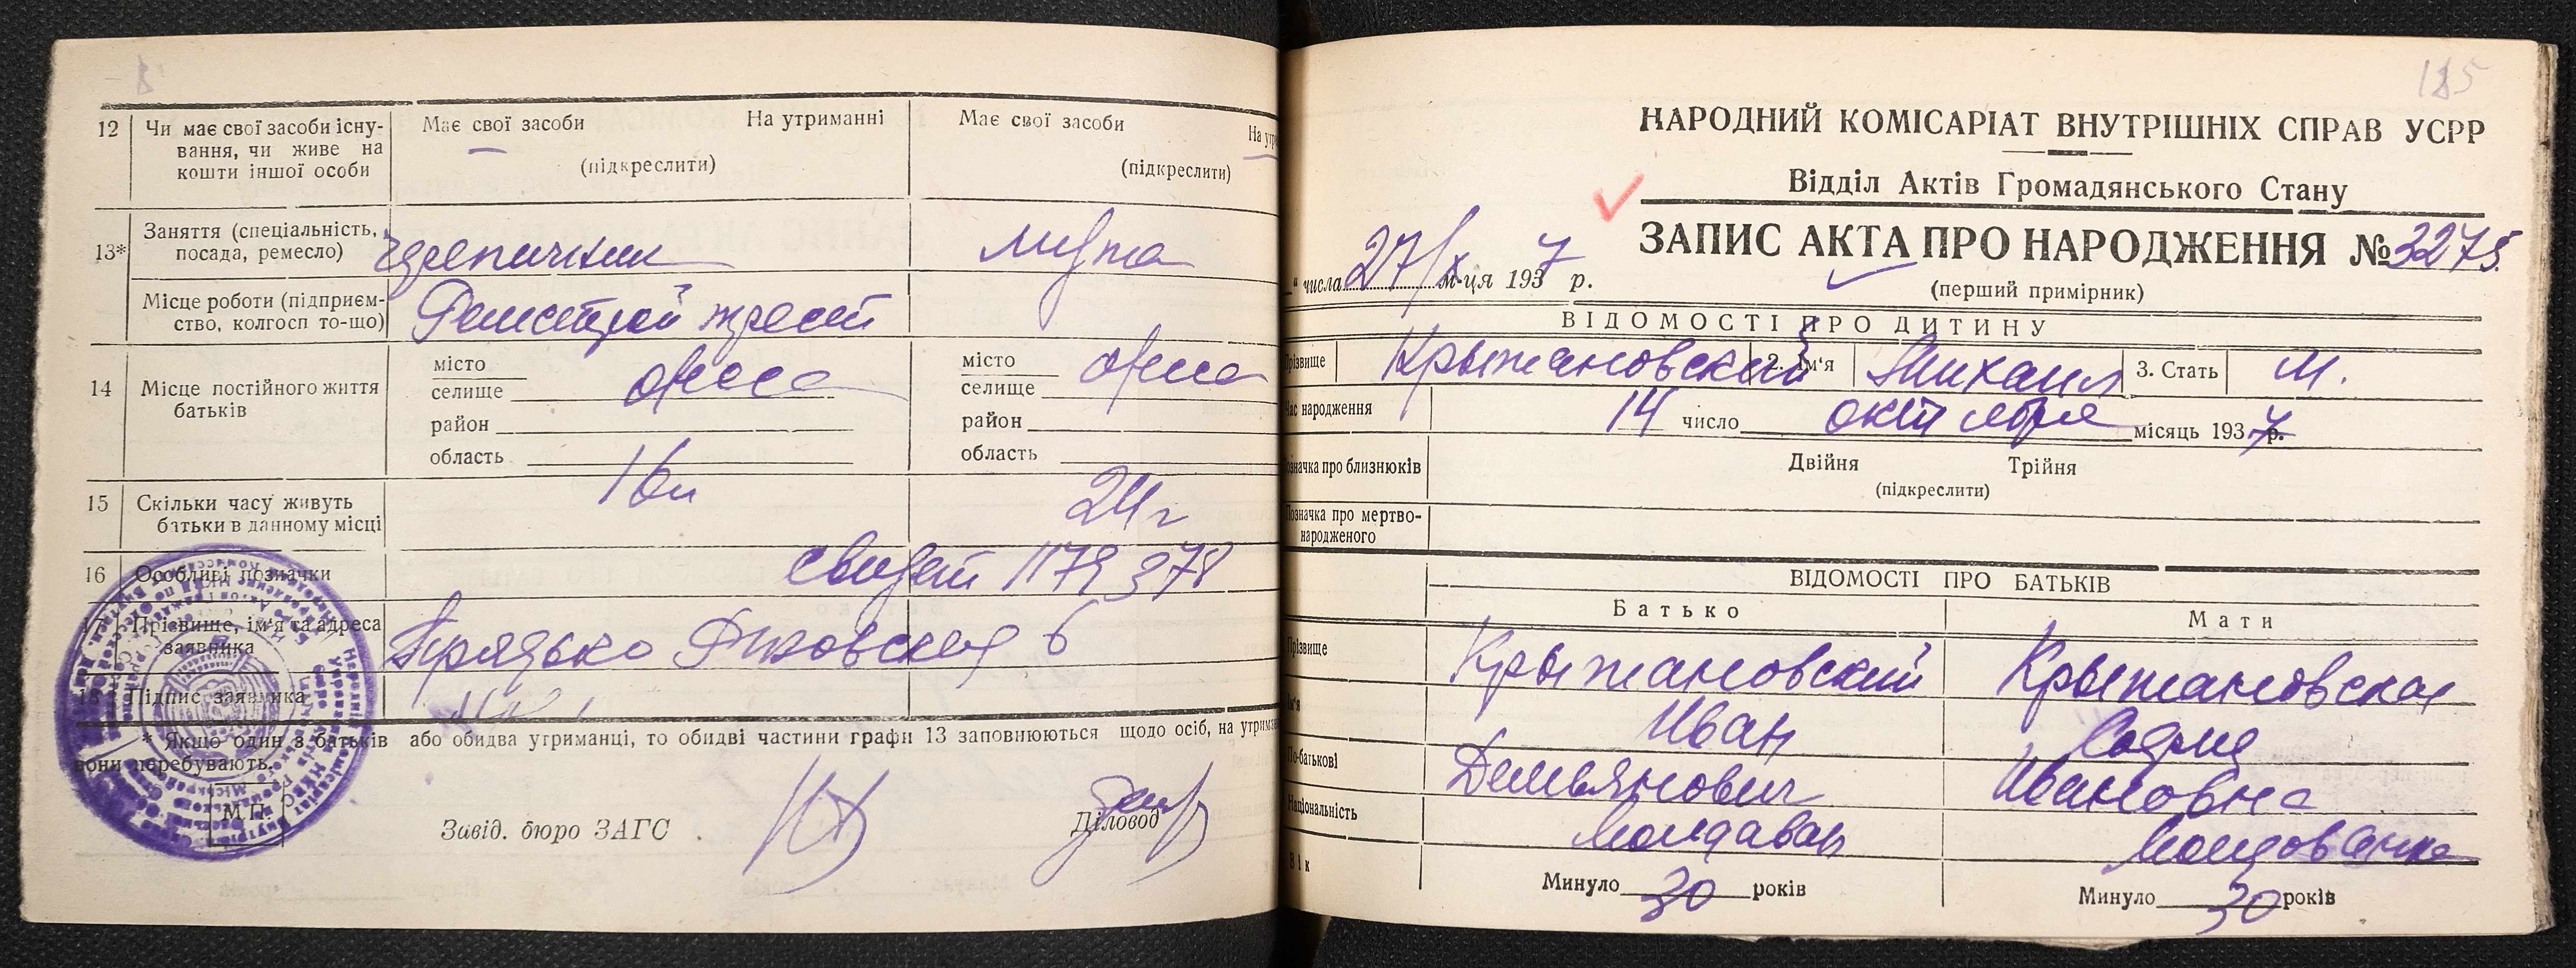 12
Чи має свої засоби існу-
вання, чи живе на
кошти іншої особи
Має свої засоби На утриманні
(підкреслити)
Має свої засоби
(підкреслити)
13*
Заняття (спеціальність,
посада, ремесло)
черепичник
Місце роботи (підприєм-
ство, колгосп то-що)
трест
14
Місце постійного життя
батьків
місто
селище Одесса
район
область
місто Одесса
селище
район
область
15
Скільки часу живуть
батьки в данному місці
16л
24г
16
Особливі позначки
свидет 1179378
17
Прізвище, ім'я та адреса
заявника
6
18
Підпис заявника
* Якщо один з батьків або обидва утриманці, то обидві частини графи 13 заповнюються щодо осіб, на
вони перебувають.
М.П.
Завід. бюро ЗАГС
Діловод
185
НАРОДНИЙ КОМІСАРІАТ ВНУТРІШНІХ СПРАВ УСРР
Відділ Актів Громадянського Стану
ЗАПИС АКТА ПРО НАРОДЖЕННЯ № 3275.
числа 27/X м-ця 1937 р.
(перший примірник)
ВІДОМОСТІ ПРО ДИТИНУ
Прізвище Крыжановский 2. Ім'я Михаил 3. Стать М.
Час народження 14 число октября місяць 1937 р.
Позначка про близнюків Двійня Трійня
(підкреслити)
Позначка про мертво-
народженого
ВІДОМОСТІ ПРО БАТЬКІВ
Батько Мати
Прізвище Крыжановский Крыжановская
Ім'я Иван София
По-батькові Демьянович Ивановна
Національність Молдаван Молдованка
Вік Минуло 30 років Минуло 30 років